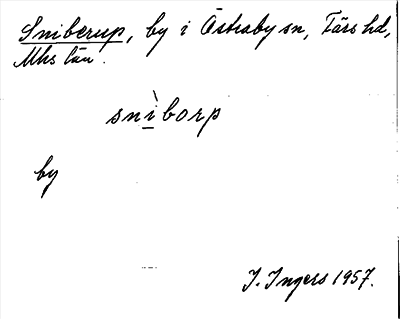 Sniberup, by i Östraby sn, Färs hd,
Mhs län.
snìborp
by
I. Ingers 1957.